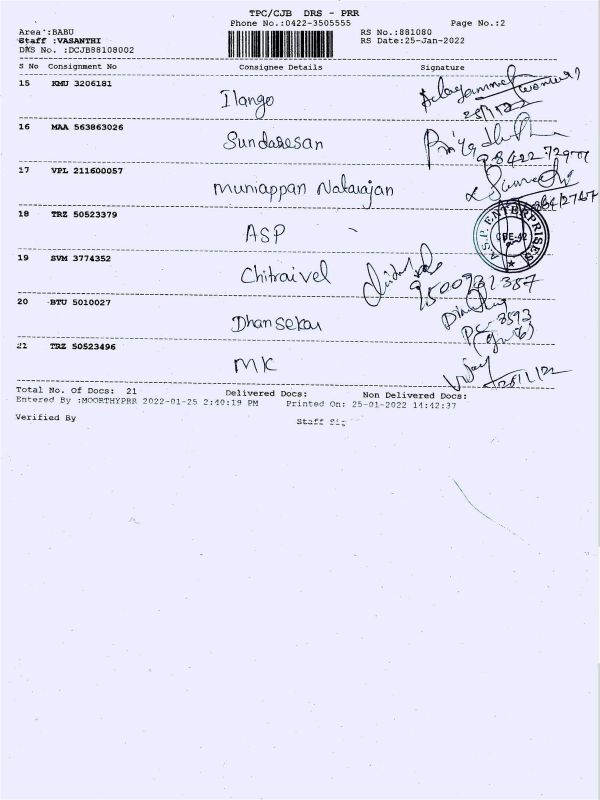 TPC/CJB DRS - PRR
Phone No.:0422-3505555 Page No.:2
Area :BABU RS No.:881080
Staff :VASANTHI RS Date:25-Jan-2022
DRS No. :DCJB88108002
S No Consignment No Consignee Details Signature
15 KMU 3206181 Ilango
25/1/22
16 MAA 563863026 Sundaresan
17 VPL 211600057 Muniappan Natarajan
18 TRZ 50523379 ASP
A.S.P. ENTERPRISES
CBE-42
19 SVM 3774352 Chitraivel
20 BTU 5010027 Dhansekar
21 TRZ 50523496 MK
25/1/22
Total No. Of Docs: 21 Delivered Docs: Non Delivered Docs:
Entered By :MOORTHYPRR 2022-01-25 2:40:19 PM Printed On: 25-01-2022 14:42:37
Verified By Staff Sig